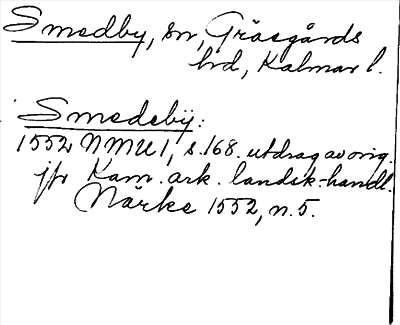 Smedby, sn, Gräsgårds
hrd, Kalmar l.
Smedebÿ:
1552 NMU 1, s. 168. utdrag av orig.
jfr Kam. ark. landsk.-handl.
Närke 1552, n. 5.